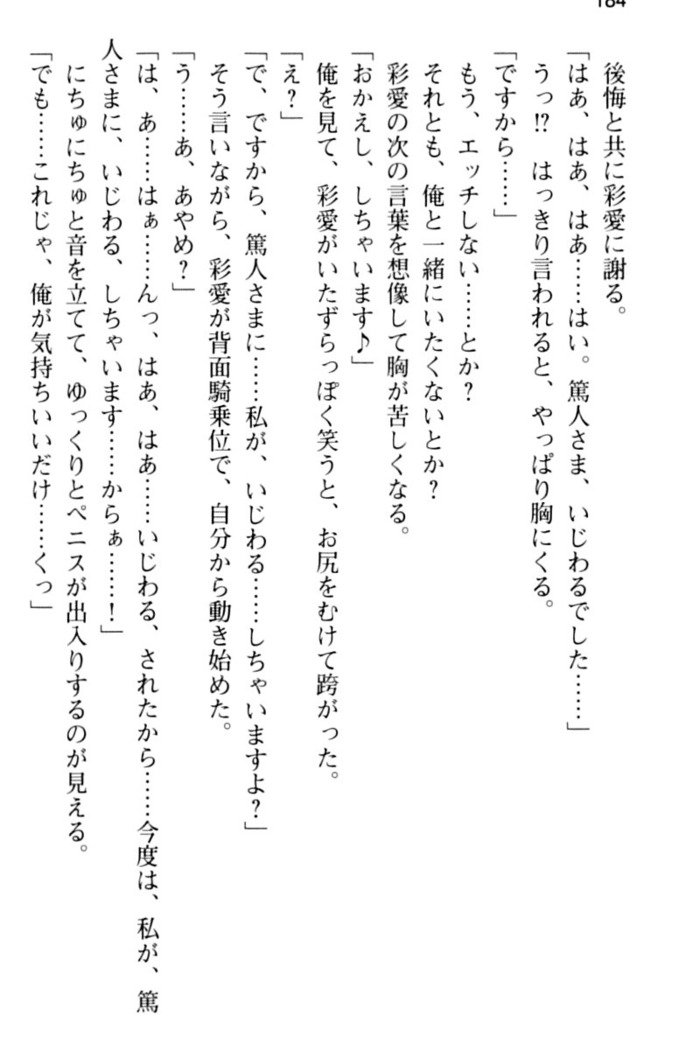 184
後悔と共に彩愛に謝る。
「はあ、はあ、はあ……はい。篤人さま、いじわるでした……」
うっ!? はっきり言われると、やっぱり胸にくる。
「ですから……」
もう、エッチしない……とか?
それとも、俺と一緒にいたくないとか?
彩愛の次の言葉を想像して胸が苦しくなる。
「おかえし、しちゃいます♪」
俺を見て、彩愛がいたずらっぽく笑うと、お尻をむけて跨がった。
「え?」
「で、ですから、篤人さまに……私が、いじわる……しちゃいますよ?」
そう言いながら、彩愛が背面騎乗位で、自分から動き始めた。
「う……あ、あやめ?」
「は、あ……はぁ……んっ、はあ、はあ……いじわる、されたから……今度は、私が、篤
人さまに、いじわる、しちゃいます……からぁ……!」
にちゅにちゅと音を立てて、ゆっくりとペニスが出入りするのが見える。
「でも……これじゃ、俺が気持ちいいだけ……くっ」